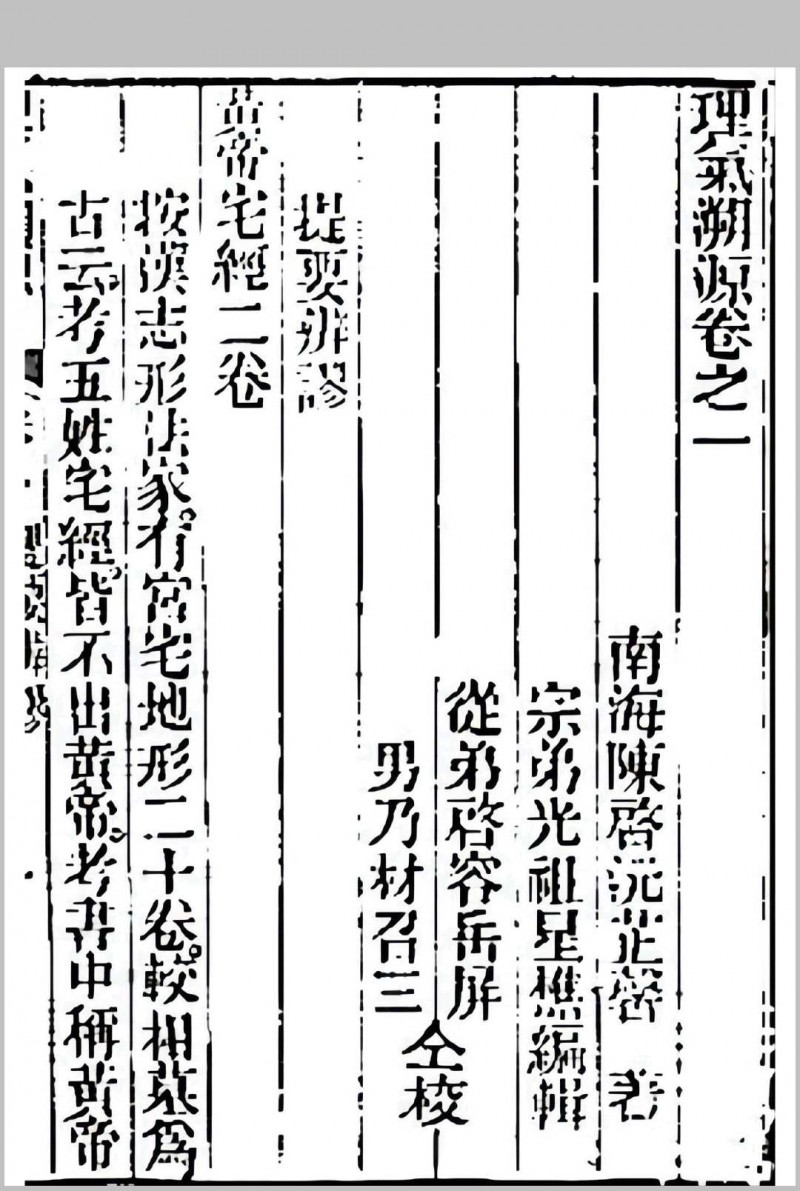 理氣溯源卷之一
南海陳啓沅芷馨 著
宗弟光祖星樵編輯
從弟啓容岳屏
男乃材召三
仝校
提要辨謬
黃帝宅經二卷
按漢志形法家。有宮宅地形二十卷。較相墓爲
古云。考五姓宅經。皆不出黃帝。考書中稱黃帝